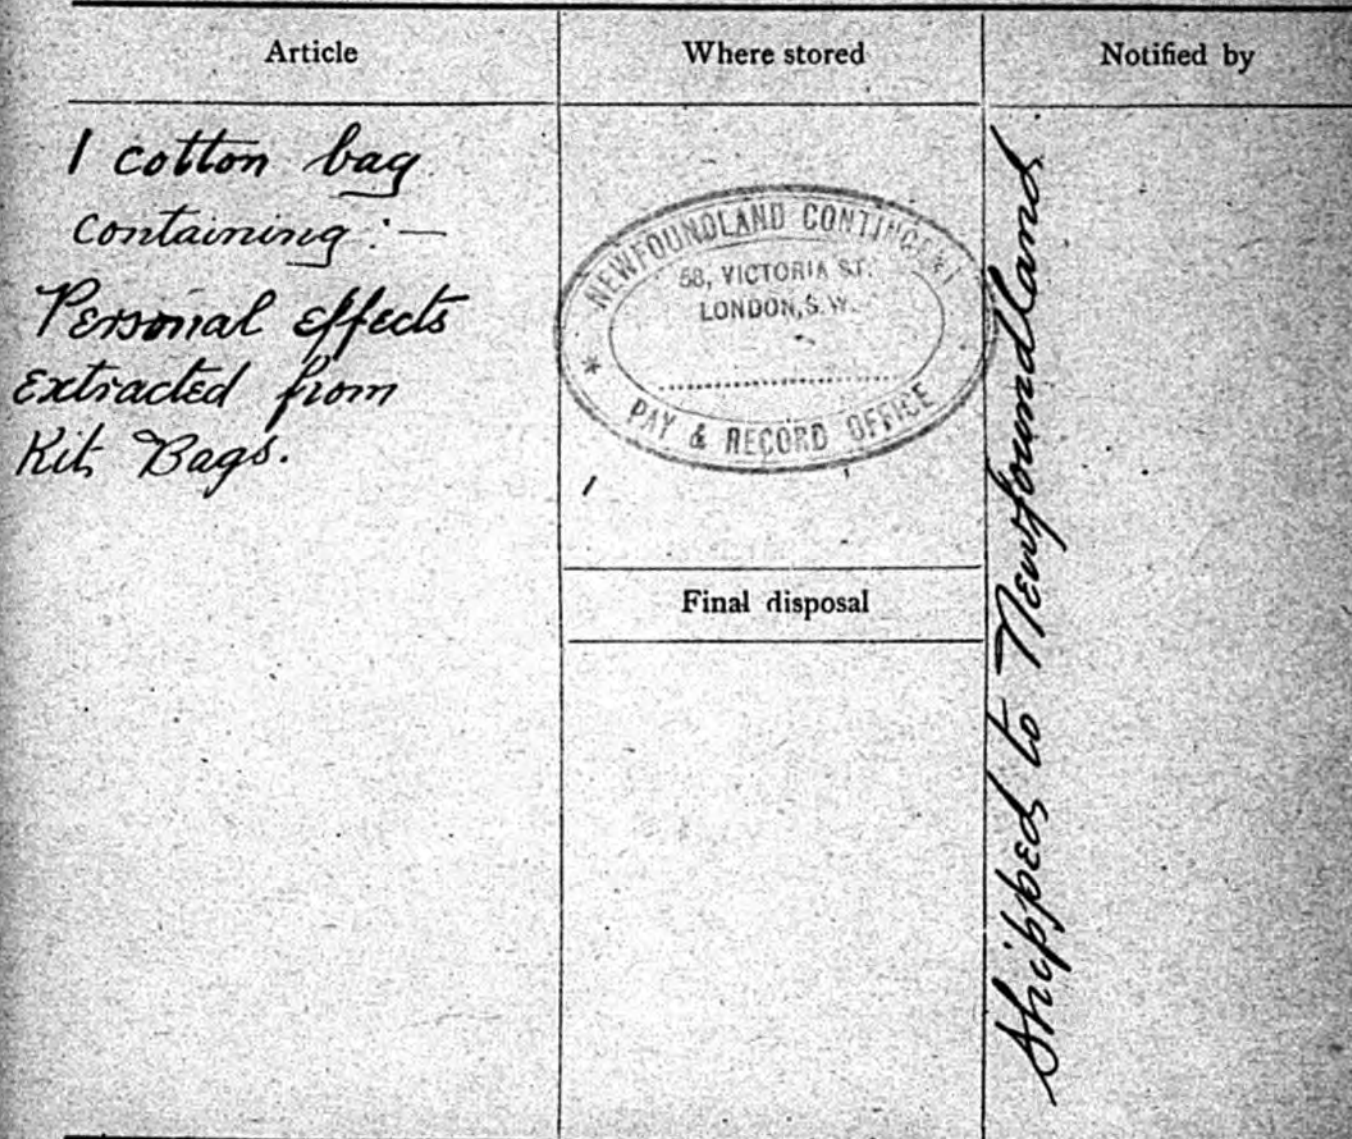 Article
Where stored
Notified by
1 cotton bag
containing :—
Personal effects
extracted from
Kit Bags.
NEWFOUNDLAND CONTINGENT
58, VICTORIA ST.
LONDON, S.W.
* PAY & RECORD OFFICE
Final disposal
Shipped to Newfoundland